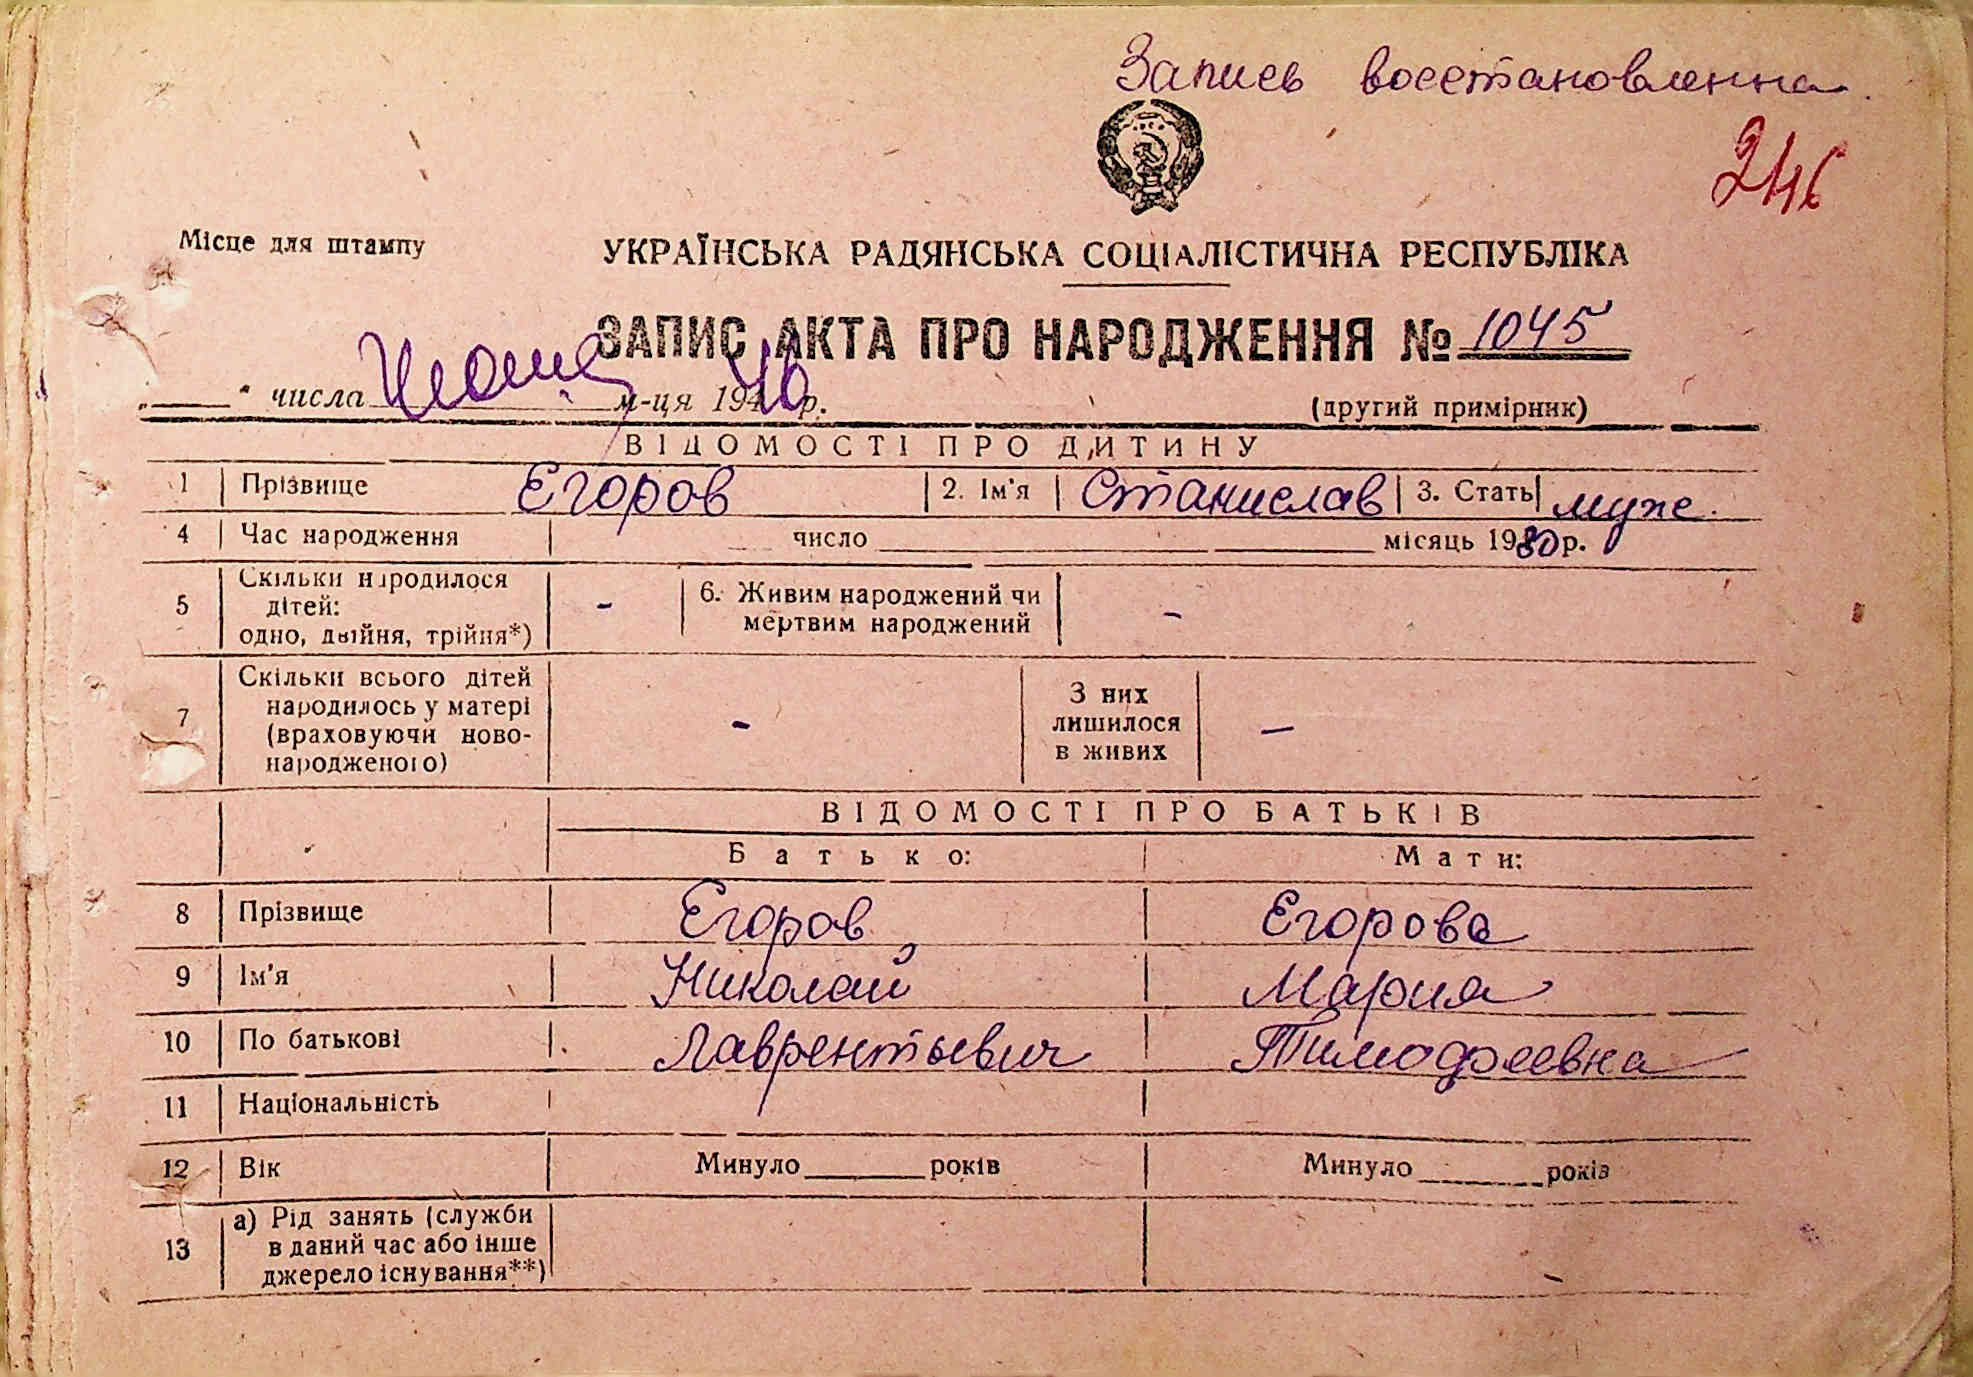 Запись восстановленна
246
Місце для штампу
УКРАЇНСЬКА РАДЯНСЬКА СОЦІАЛІСТИЧНА РЕСПУБЛІКА
ЗАПИС АКТА ПРО НАРОДЖЕННЯ № 1045
„____" числа Июня м-ця 1940 р.
(другий примірник)
ВІДОМОСТІ ПРО ДИТИНУ
1 Прізвище Егоров 2. Ім'я Станислав 3. Стать муж.
4 Час народження число місяць 19 р.
5 Скільки народилося дітей: одно, двійня, трійня*) - 6. Живим народжений чи мертвим народжений -
7 Скільки всього дітей народилось у матері (враховуючи новонародженого) - З них лишилося в живих -
ВІДОМОСТІ ПРО БАТЬКІВ
Батько: Мати:
8 Прізвище Егоров Егорова
9 Ім'я Николай Мария
10 По батькові Лаврентьевич Тимофеевна
11 Національність
12 Вік Минуло ____ років Минуло ____ років
13 а) Рід занять (служби в даний час або інше джерело існування**)